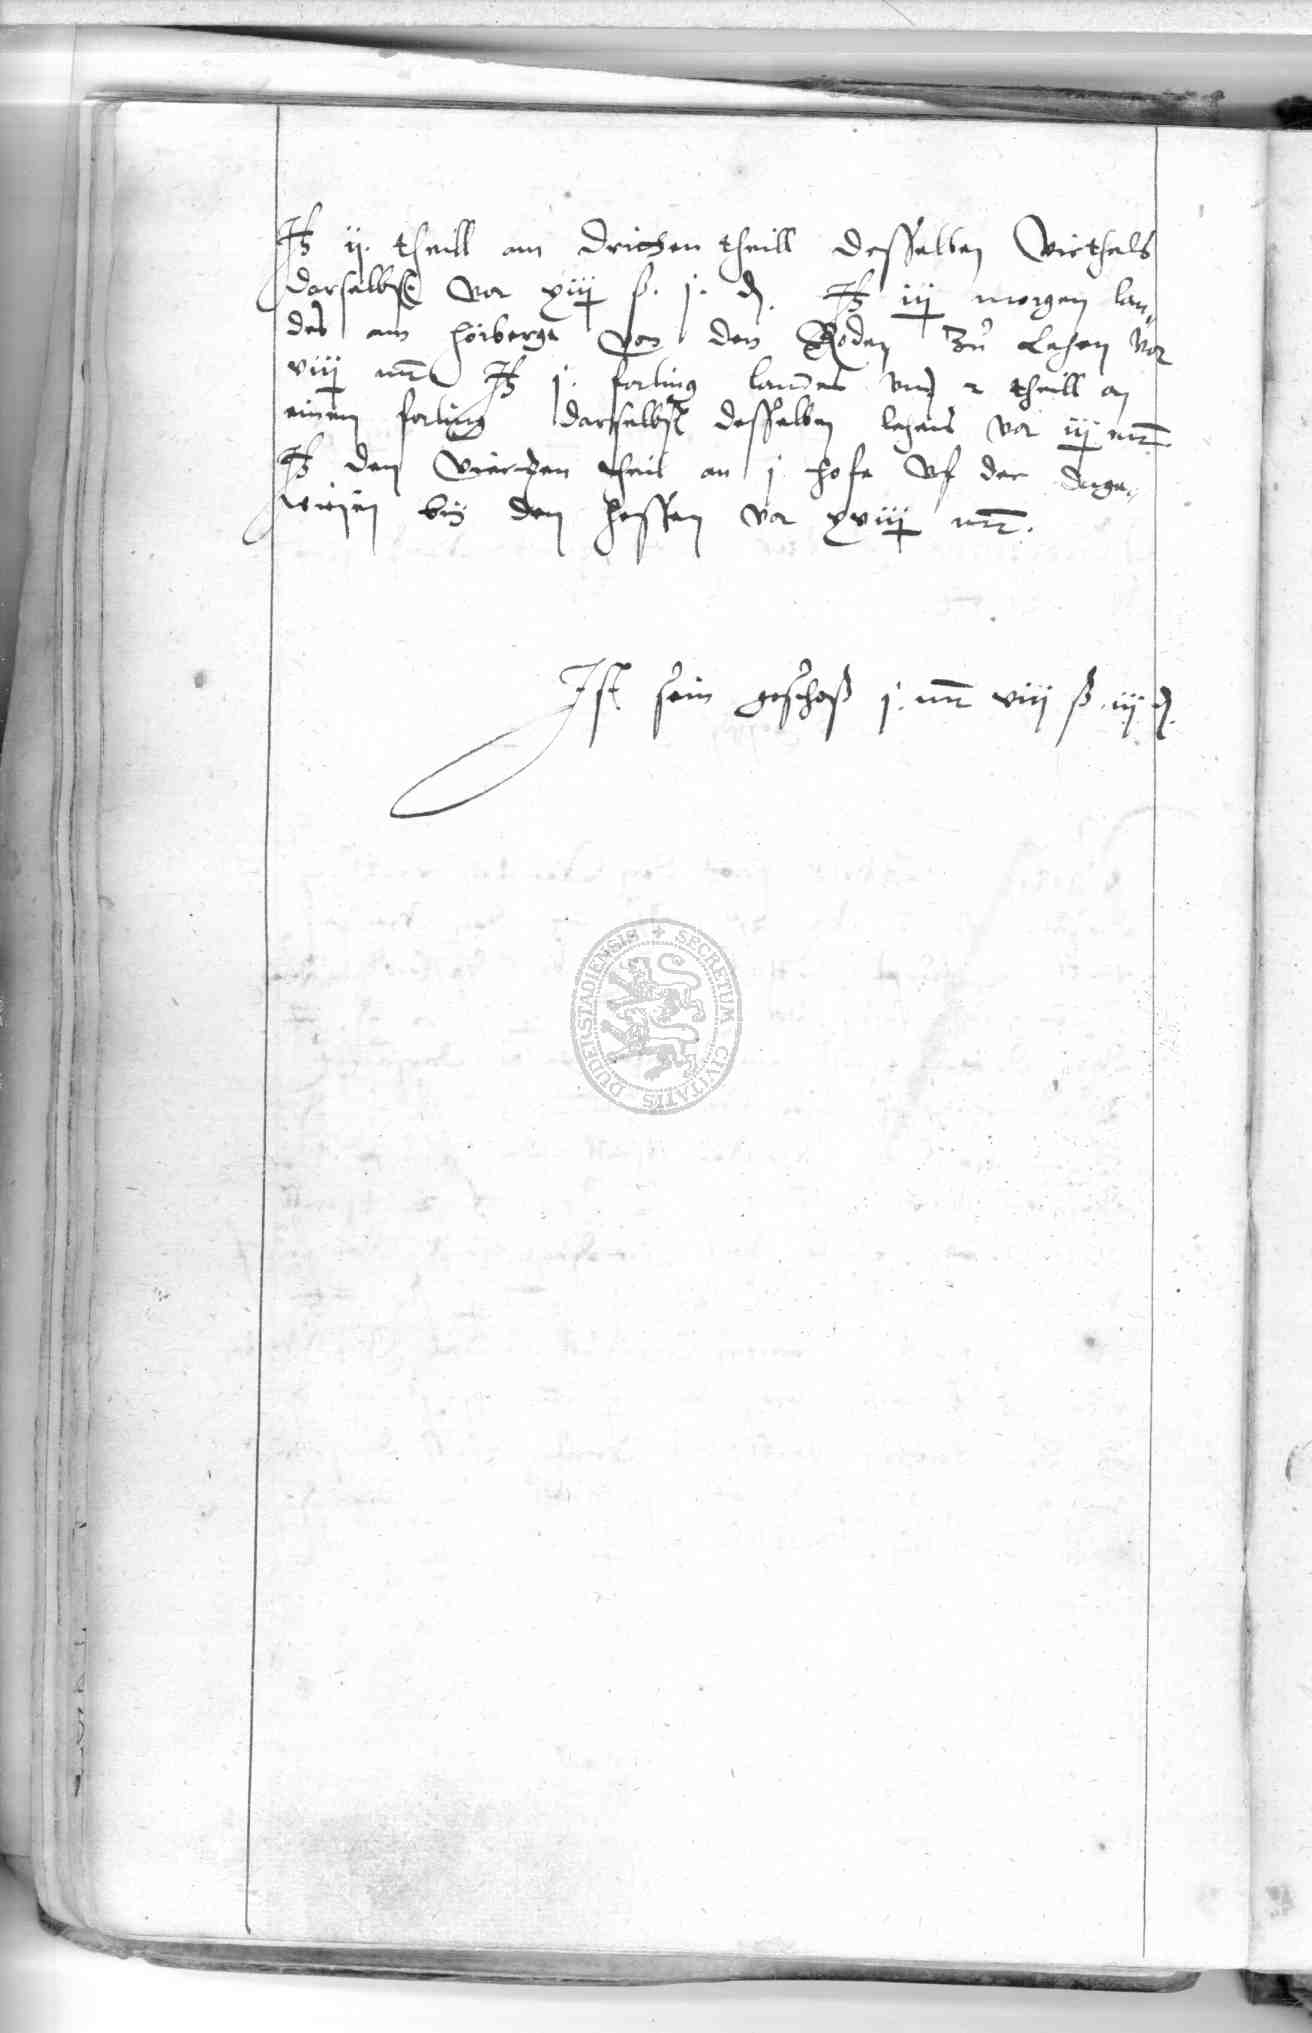 It ij. theill am dritthen theill desselben Virthels
darselbst vor xiij ß. j. d. It iij morgen lan„
des am hoiberge von den Roden zu Lehen vor
viij mr It j. forling landes vnd 2 theill an
einem forling darselbst desselben lehens vor iij mr.
It den Vierzen theil an j hofe vf der
wiesen bij den hessen vor xviij mr.
Ist sein geschoß j. mr viij ß. iij d.
SECRETUM CIVITATIS DUDERSTADIENSIS